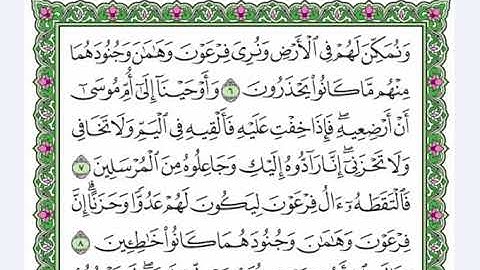 وَنُمَكِّنَ لَهُمْ فِى ٱلْأَرْضِ وَنُرِىَ فِرْعَوْنَ وَهَٰمَٰنَ وَجُنُودَهُمَا
مِنْهُم مَّا كَانُوا۟ يَحْذَرُونَ ٦ وَأَوْحَيْنَآ إِلَىٰٓ أُمِّ مُوسَىٰٓ
أَنْ أَرْضِعِيهِ ۖ فَإِذَا خِفْتِ عَلَيْهِ فَأَلْقِيهِ فِى ٱلْيَمِّ وَلَا تَخَافِى
وَلَا تَحْزَنِىٓ ۖ إِنَّا رَآدُّوهُ إِلَيْكِ وَجَاعِلُوهُ مِنَ ٱلْمُرْسَلِينَ ٧
فَٱلْتَقَطَهُۥٓ ءَالُ فِرْعَوْنَ لِيَكُونَ لَهُمْ عَدُوًّا وَحَزَنًا ۗ إِنَّ
فِرْعَوْنَ وَهَٰمَٰنَ وَجُنُودَهُمَا كَانُوا۟ خَٰطِـِٔينَ ٨